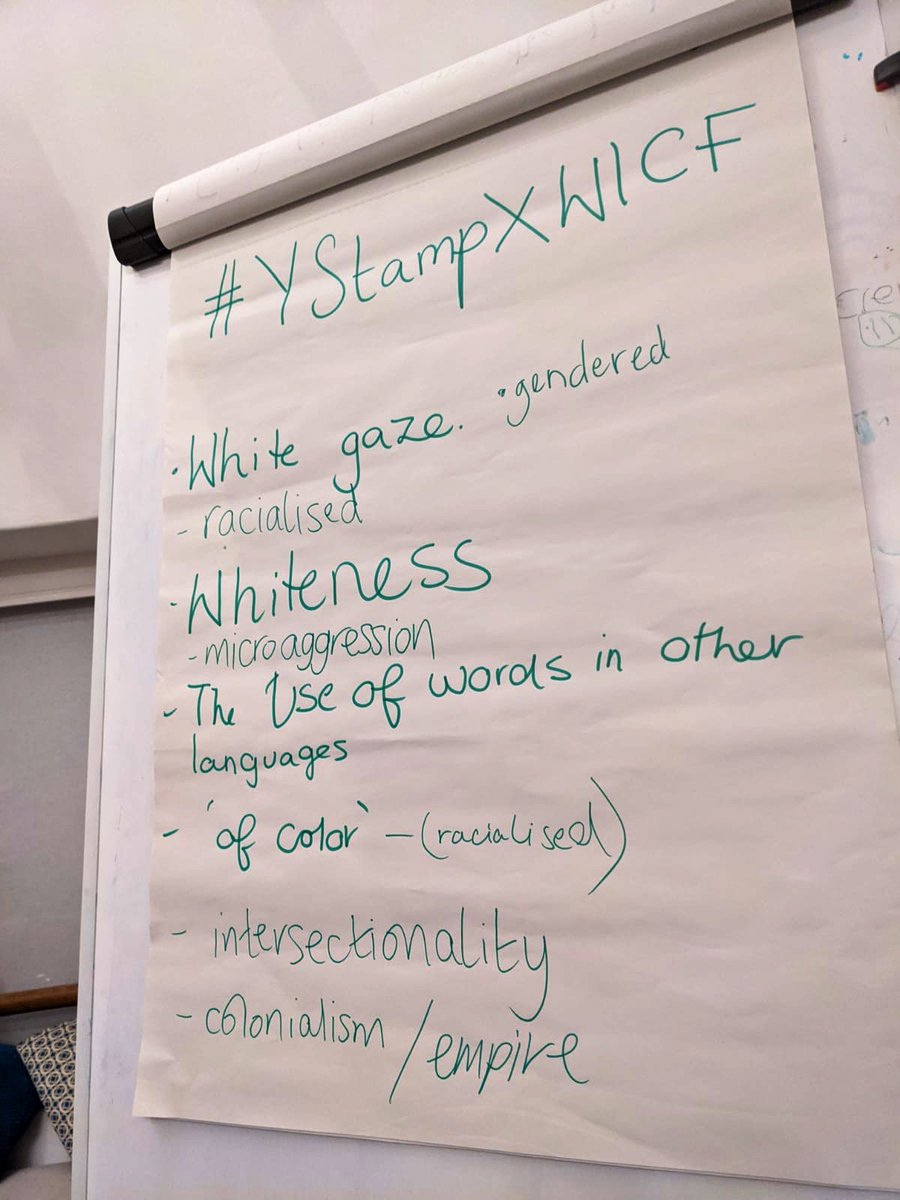 #YStampXWICF
·White gaze. ·gendered
- racialised
·Whiteness
-microaggression
- The Use of words in other
languages
- 'of color' - (racialised)
- intersectionality
- colonialism / empire